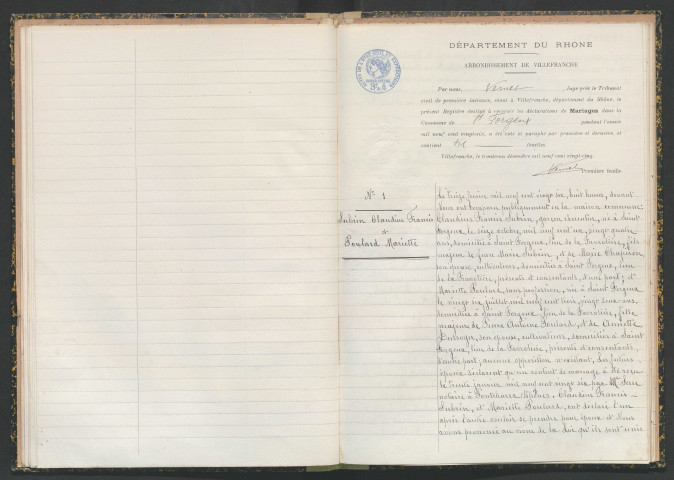 DÉPARTEMENT DU RHONE
ARRONDISSEMENT DE VILLEFRANCHE
Par nous, Juge près le Tribunal
civil de première instance, séant à Villefranche, département du Rhône, le
présent Registre destiné à recevoir les déclarations de Mariages dans la
Commune de St Forgeux pendant l'année
mil neuf cent vingt-six, a été coté et paraphé par première et dernière, et
contient feuilles
Villefranche, le trenterous décembre mil neuf cent vingt-cinq.
Première feuille
No 1
Subrin Claudius Francis
et
Poulard Mariette
Le treize février mil neuf cent vingt six, huit heures, devant
Nous ont comparu publiquement en la maison commune:
Claudius Francis Subrin, garçon charentin, né à Saint
Forgeux le seize octobre mil neuf cent un, vingt quatre
ans, domicilié à Saint Forgeux, lieu de la Parrotière, fils
majeur de Jean Marie Subrin, et de Marie Chaperon
son épouse, cultivateurs, domiciliés à Saint Forgeux, lieu
de la présents et consentants, d'une part; et
Mariette Poulard, sans profession, née à Saint Forgeux
le vingt six juillet mil neuf cent trois, vingt deux ans,
domiciliée à Saint Forgeux, lieu de la Parrotière, fille
majeure de Pierre Antoine Poulard, et de Annette
son épouse, cultivateurs, domiciliés à Saint
Forgeux, lieu de la Parrotière, présents et consentants,
d'autre part; aucune opposition n'existant, les futurs
époux déclarent qu'un contrat de mariage a été reçu
le trente janvier mil neuf cent vingt six par Me
notaire à Pontcharra. Claudius Francis
Subrin, et Mariette Poulard, ont déclaré l'un
après l'autre vouloir se prendre pour époux et Nous
avons prononcé au nom de la Loi qu'ils sont unis